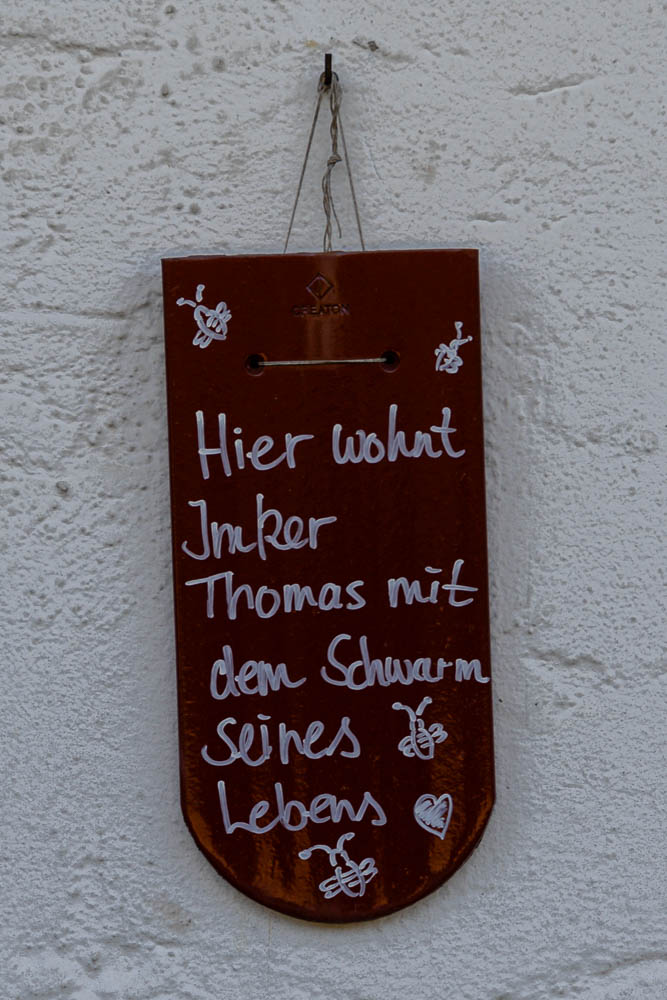 CREATON
Hier wohnt
Imker
Thomas mit
dem Schwarm
seines
Lebens